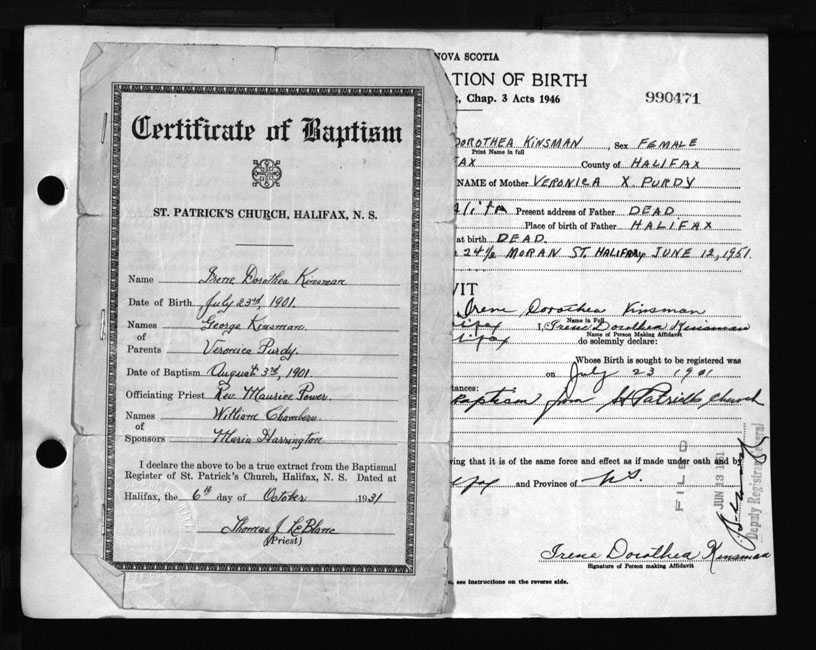 Certificate of Baptism
ST. PATRICK'S CHURCH, HALIFAX, N. S.
Name Irene Dorothea Kinsman
Date of Birth July 23rd, 1901.
Names George Kinsman.
of
Parents Veronica Purdy.
Date of Baptism August 3rd, 1901.
Officiating Priest Rev. Maurice Power.
Names William Chambers
of
Sponsors Maria Harrington
I declare the above to be a true extract from the Baptismal
Register of St. Patrick's Church, Halifax, N. S. Dated at
Halifax, the 6th day of October 1931
Thomas J. LeBlanc
(Priest)
NOVA SCOTIA
TION OF BIRTH
, Chap. 3 Acts 1946
990471
DOROTHEA KINSMAN, Sex FEMALE
Print Name in full
FAX County of HALIFAX
NAME of Mother VERONICA X. PURDY
Present address of Father DEAD
Place of birth of Father HALIFAX
at birth DEAD.
24½ MORAN ST. HALIFAX JUNE 12, 1951.
VIT
Irene Dorothea Kinsman
Name in Full
lifax I, Irene Dorothea Kinsman
Name of Person Making Affidavit
lifax do solemnly declare:
Whose Birth is sought to be registered was
on July 23 1901
tances:
Baptism from St Patricks Church
ving that it is of the same force and effect as if made under oath and by
lifax and Province of N.S.
FILED
JUN 13 1951
Deputy Registrar General
Irene Dorothea Kinsman
Signature of Person making Affidavit
n, see instructions on the reverse side.